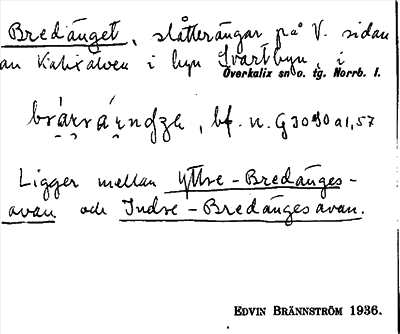 Bredänget, slåtterängar på V. sidan
av Kalixälven i byn Svartbyn, i
Överkalix sn o. tg. Norrb. l.
bf. n. G
Ligger mellan Yttre-Bredänges-
avan och Indre-Bredängesavan.
EDVIN BRÄNNSTRÖM 1936.